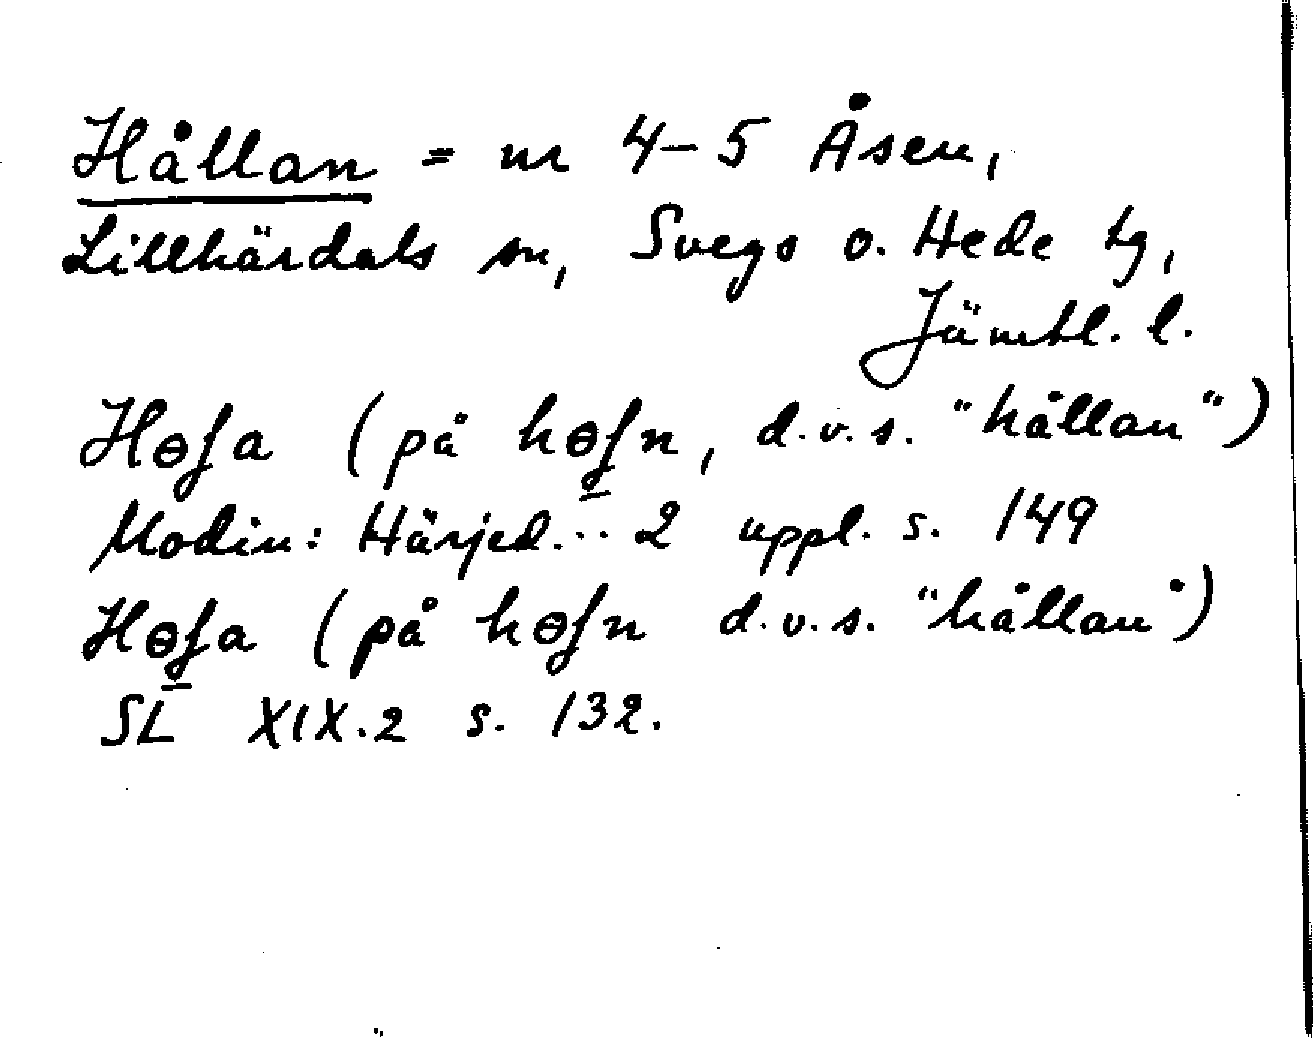 Hållan = nr 4-5 Åsen,
Lillhärdals sn, Svegs o. Hede tg,
Jämtl. l.
Hɵʃa (på hɵʃn, d.v.s. "hållan")
Modin: Härjed... 2 uppl. s. 149
Hɵʃa (på hɵʃn d.v.s. "hållan")
SL XIX.2 s. 132.